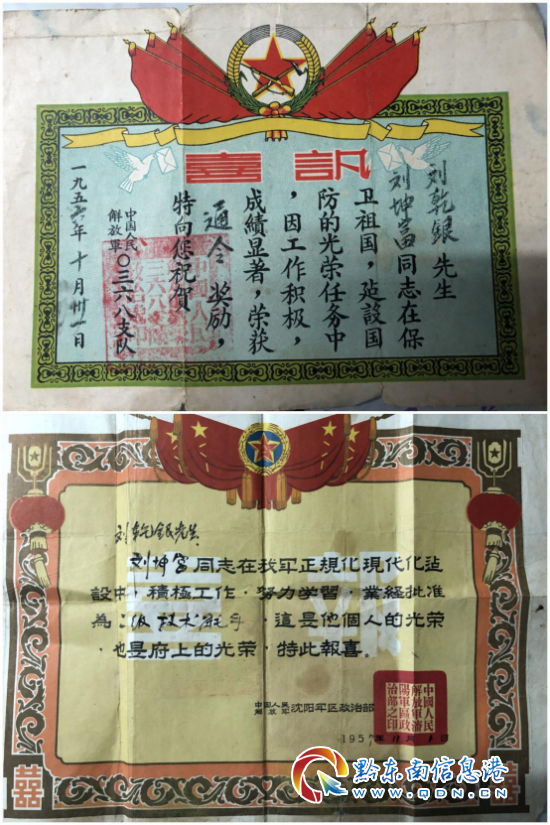 喜訊
刘乾银 先生
刘坤富同志在保
卫祖国，建設国
防的光荣任务中
，因工作积极，
成績显著，荣获
通令 奖励，
特向您祝賀
中国人民
解放軍
〇三六八支队
一九五六年十月卅一日
刘乾银先生
刘坤富同志在我軍正規化現代化
設中，積極工作，努力学習，業經批准
為 级技术能手，這是他個人的光荣
，也是府上的光荣，特此報喜。
中国人民
解放軍
沈阳軍区政治部
中國人民
解放軍瀋
陽軍區政
治部之印
195 年 月 日
囍
囍
黔东南信息港
WWW.QDN.CN